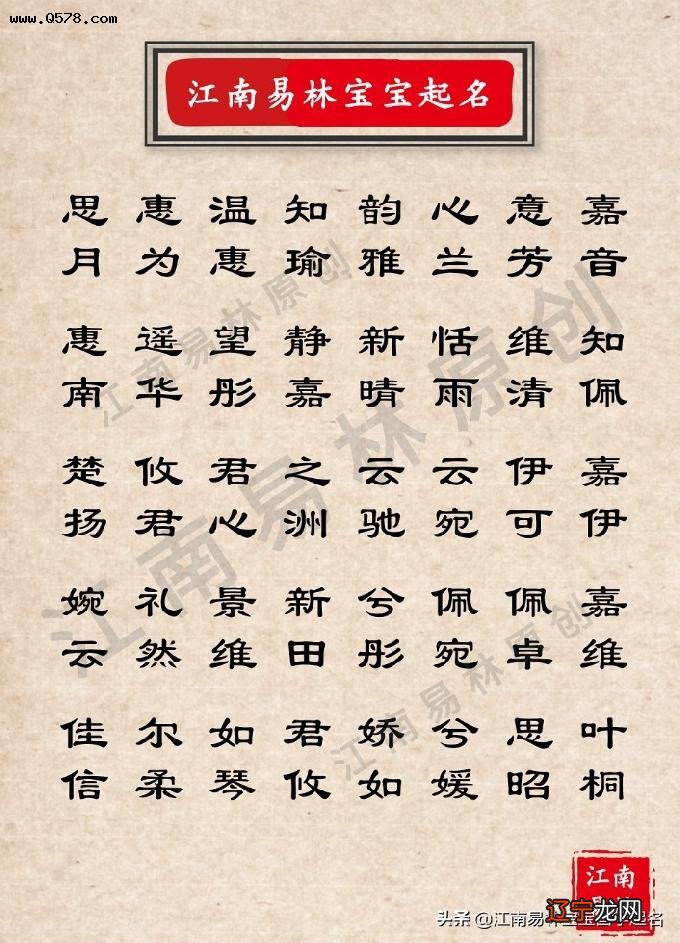 www.Q578.com
江南易林宝宝起名
思 惠 温 知 韵 心 意 嘉
月 为 惠 瑜 雅 兰 芳 音
惠 遥 望 静 新 恬 维 知
南 华 彤 嘉 晴 雨 清 佩
楚 攸 君 之 云 云 伊 嘉
扬 君 心 洲 驰 宛 可 伊
婉 礼 景 新 兮 佩 佩 嘉
云 然 维 田 彤 宛 卓 维
佳 尔 如 君 娇 兮 思 叶
信 柔 琴 攸 如 媛 昭 桐
江南易林原创
江南易林原创
江南易林原创
江南
辽宁龙网
头条 @江南易林宝宝起名